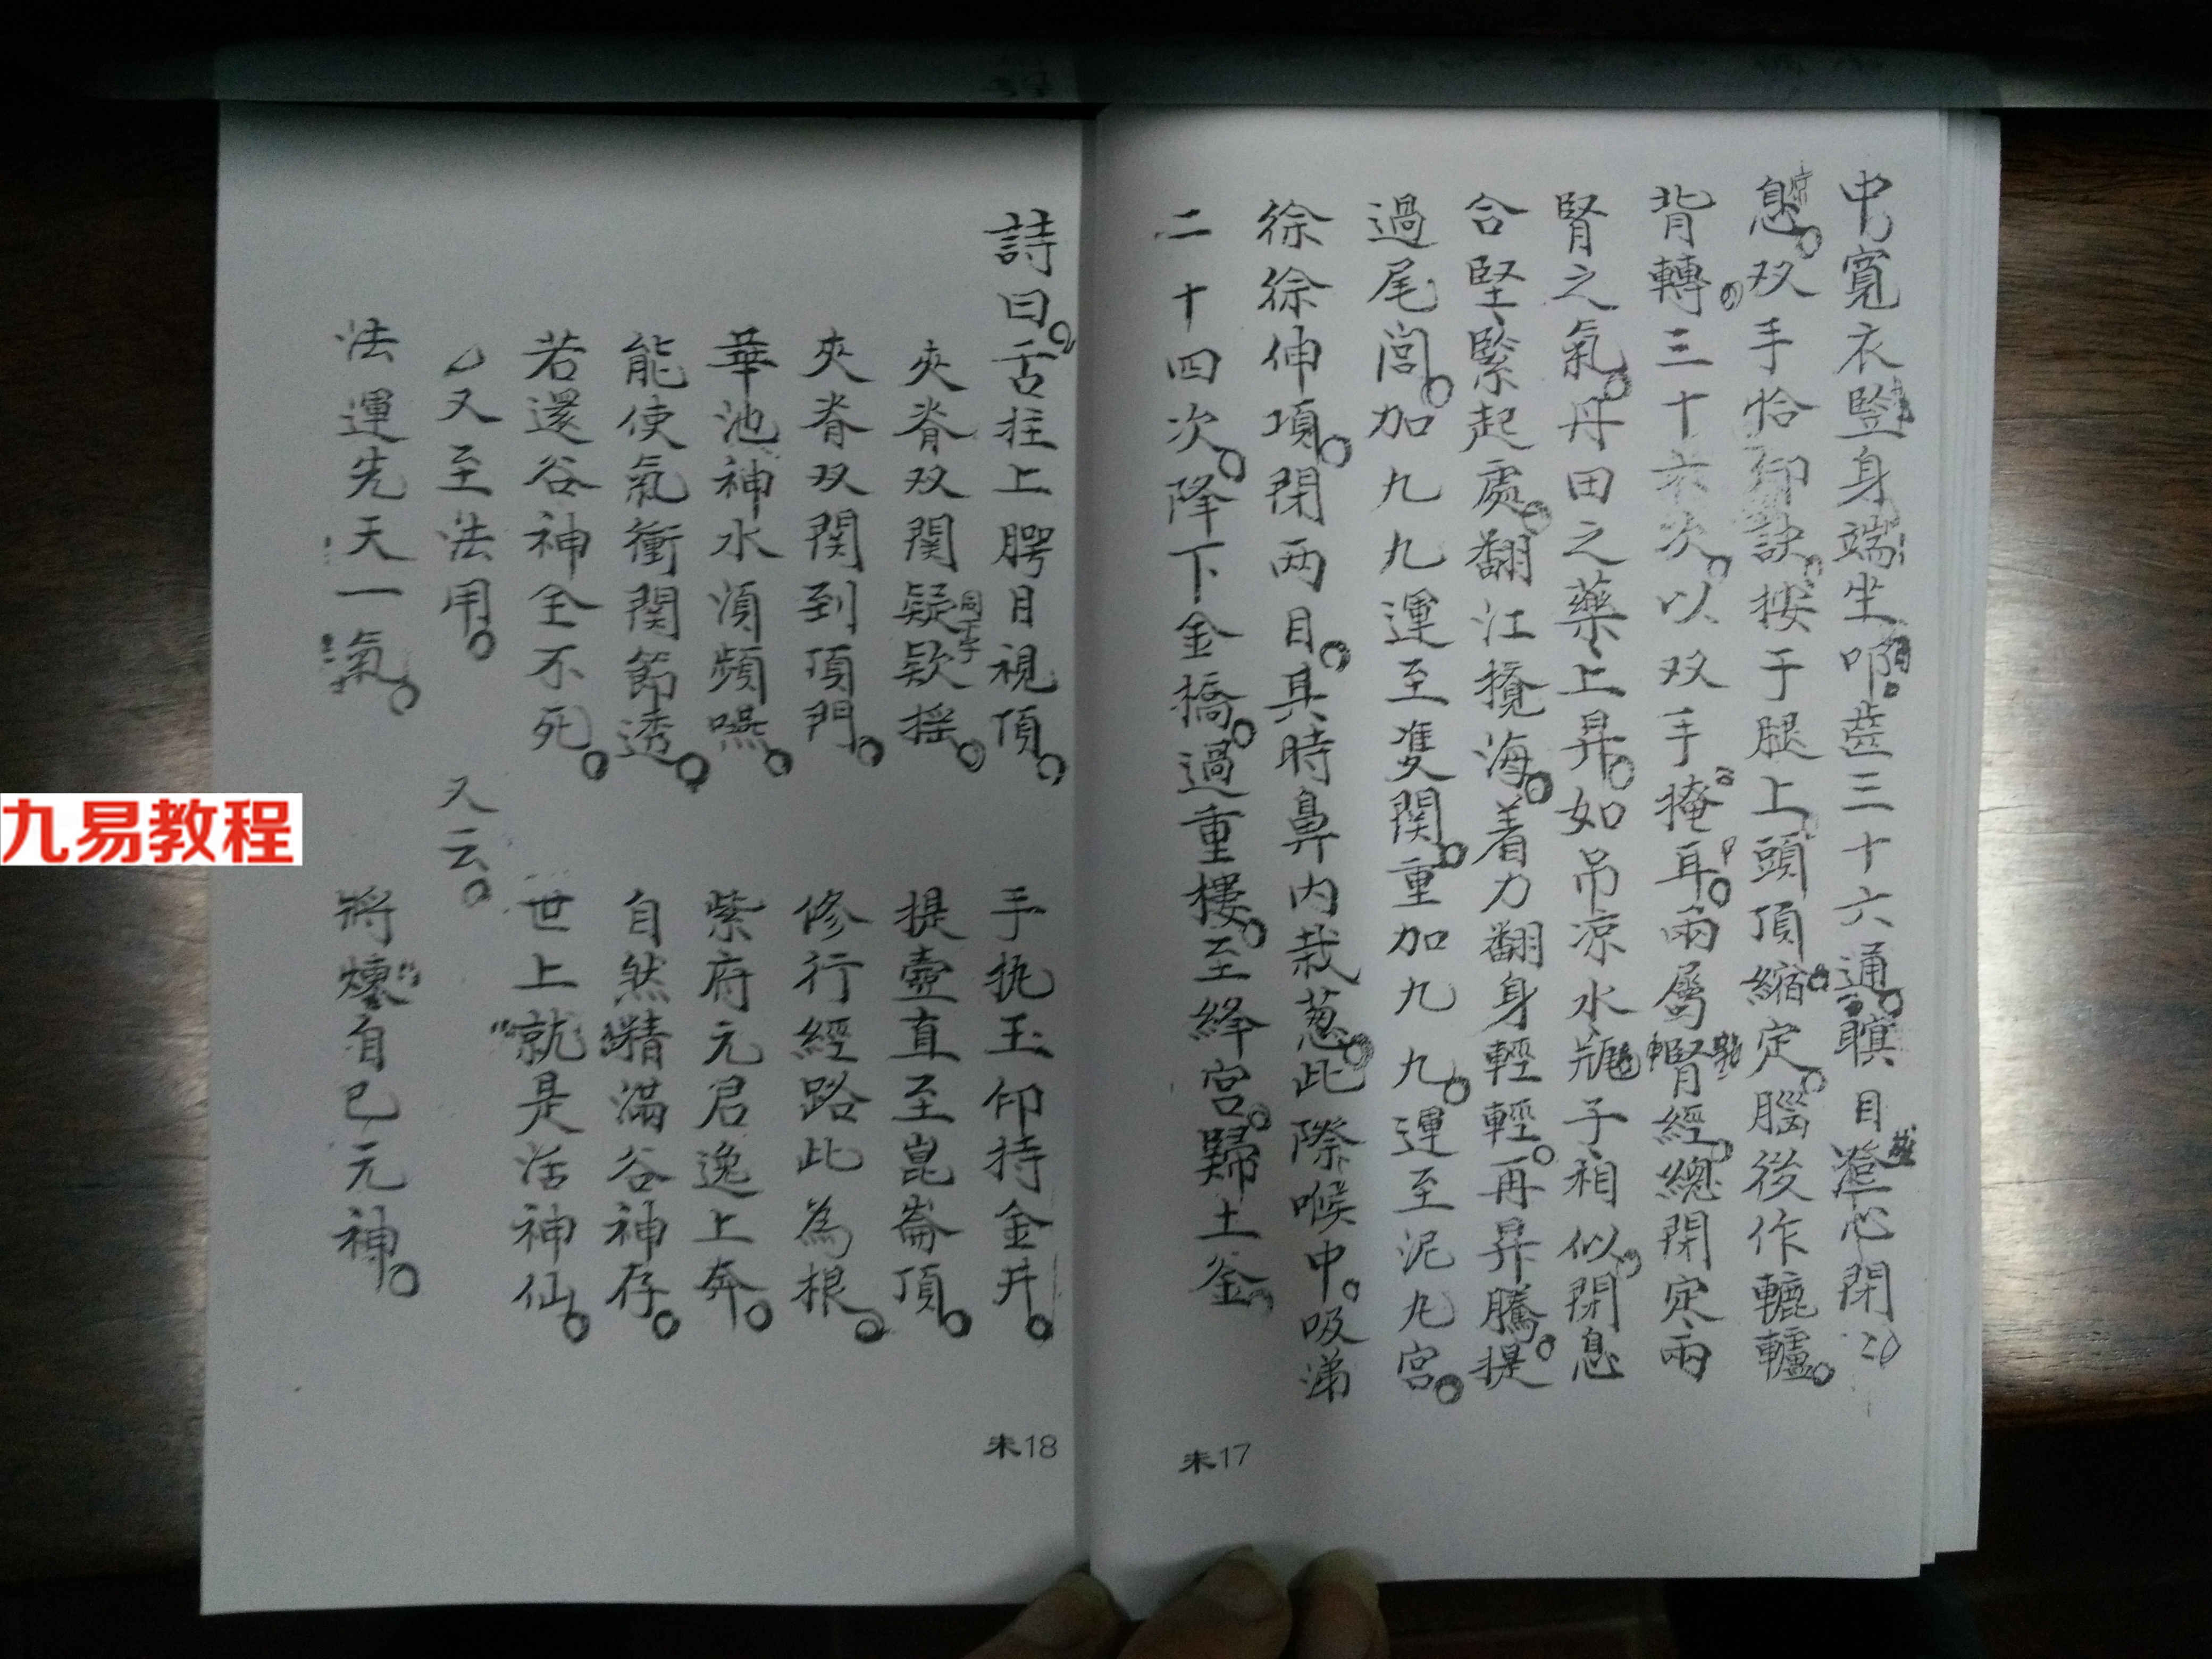 中寬衣豎身端坐叩齒三十六通瞑目澄心閉
息双手恰印訣按于腿上頭頂縮定腦後作轆轤
背轉三十六次以双手掩耳兩屬腎經總閉定兩
腎之氣丹田之藥上昇如吊涼水瓶子相似閉息
合堅緊起處翻江攪海着力翻身輕輕再昇騰提
過尾閭加九九運至雙関重加九九運至泥丸宮
徐徐伸項閉两目其時鼻内栽葱此際喉中吸涕
二十四次降下金橋過重樓至絳宮歸土釜
朱17
詩曰舌拄上腭目視頂 手执玉印持金井
夾脊双関疑欵搖 提壺直至崑崙頂
夾脊双関到頂門 修行經路此為根
華池神水湏頻嚥 紫府元君逸上奔
能使氣衝関節透 自然精滿谷神存
若還谷神全不死 世上就是活神仙
又至法用 又云
法運先天一氣 將煉自己元神
朱18
九易教程